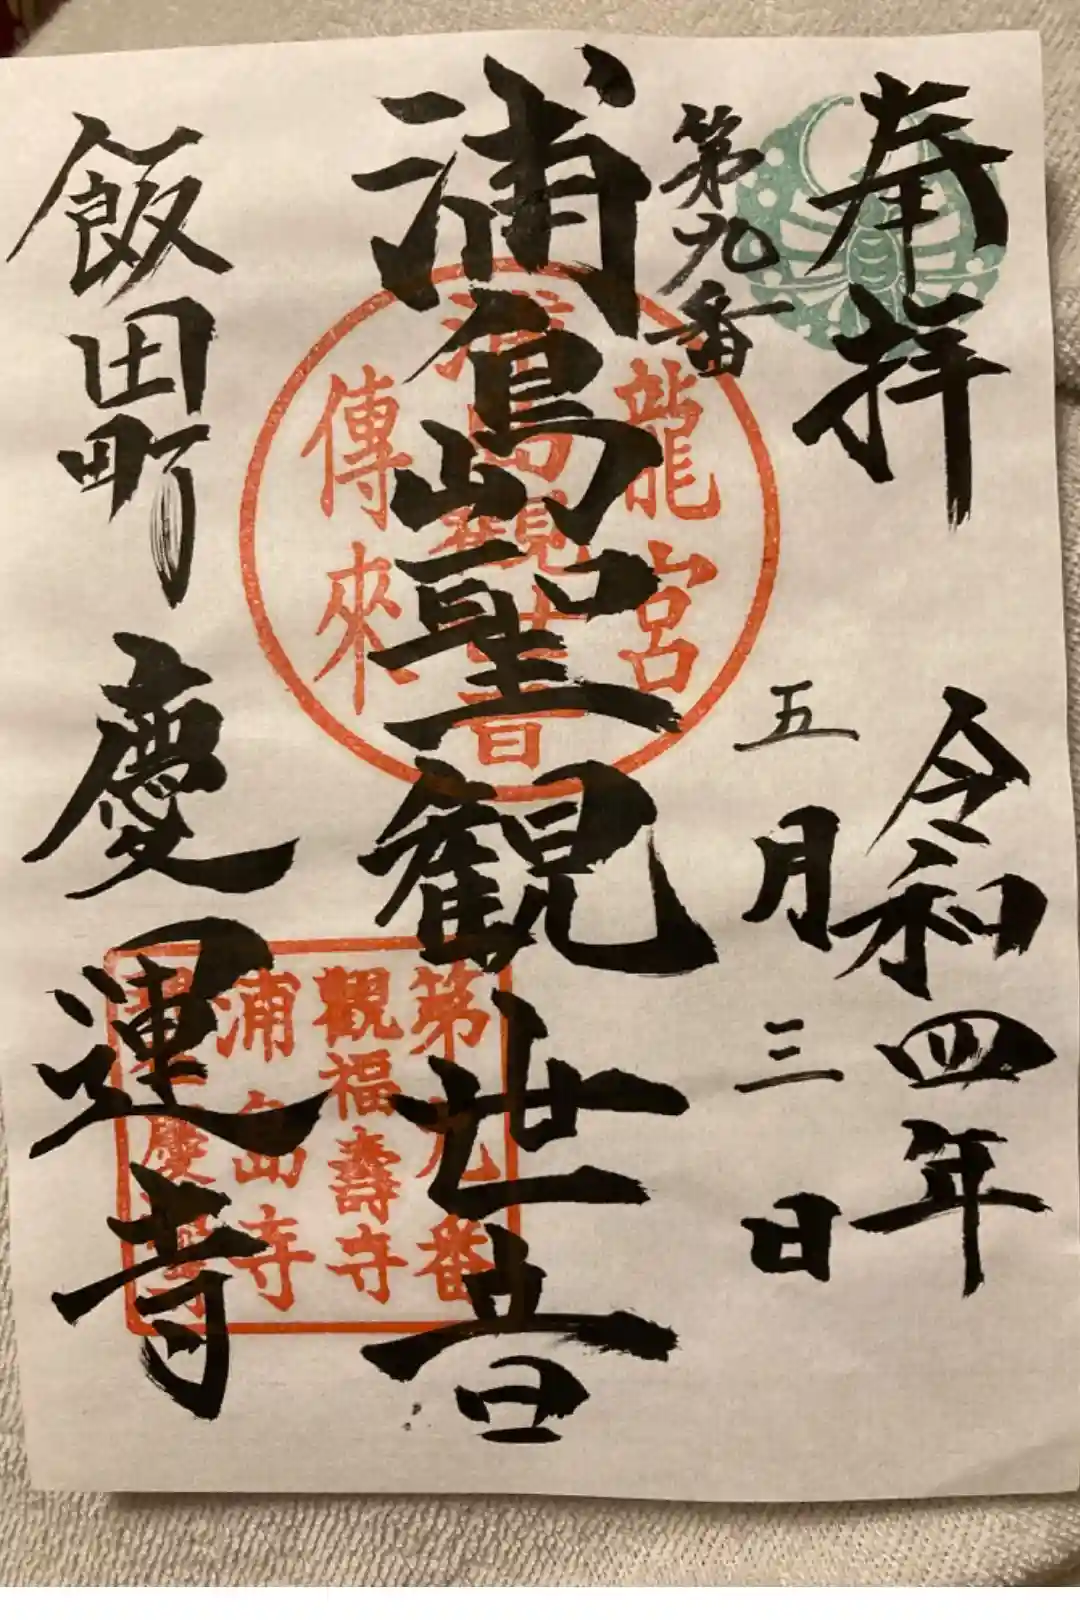 奉拝
令和四年
五月三日
第九番
浦島山聖観世音
飯田町 慶運寺
龍宮
浦島観世音
傳來
第九番
觀福壽寺
浦島寺
慶運寺